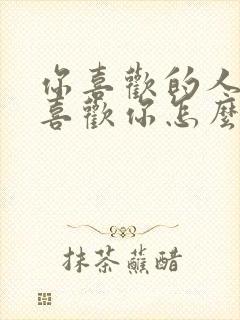 你喜歡的人
喜歡你怎麼
抹茶蘸醋